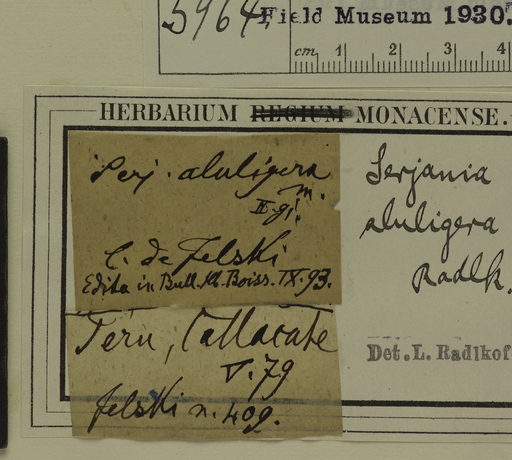 5964. Field Museum 1930.
cm 1 2 3 4
HERBARIUM REGIUM MONACENSE.
Serj. aluligera
m.
II. 91.
C. de Jelski
Edita in Bull. Hb. Boiss. IX. 93.
Peru, Callacate
V. 79
Jelski n. 409.
Serjania
aluligera
Radlk.
Det. L. Radlkof